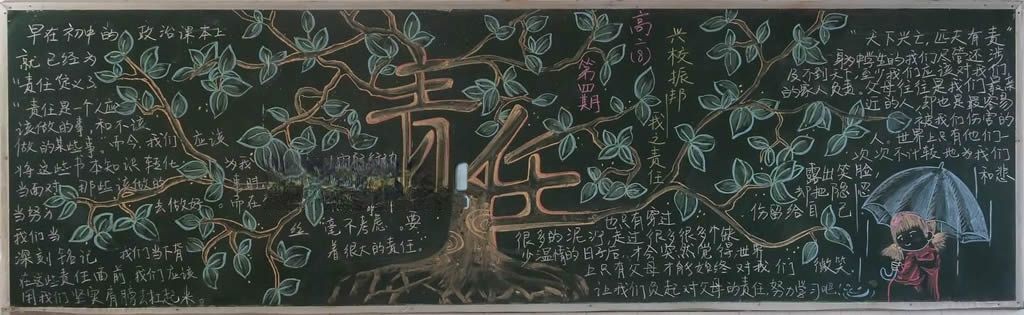 早在初中的政治课本上
就已经为
"责任"定义了
"责任是一个人应
该做的事,和不该
做的某些事。而今,我们应该
将这些书本知识转化为我
当面对那些该做的事时
当努力去做好,而在
丝毫不考虑。要
我们当
着很大的责任。
深刻铭记
我们当下肩
在这些责任面前,我们应该
用我们坚实肩膀去扛起来。
责任
高二(8)
第四期
兴校振邦
我之责任
"天下兴亡,匹夫有责"
身为学生的我们尽管还涉
及不到天下,至少我们应该对我们
的家人负责。父母往往是我们最亲
近的人,却也是我们最容易
被我们伤害的
人。世界上只有他们一
次次不计较地为我们
露出笑脸,
和悲
都把隐忍
伤留给自己
也只有穿过
很多的泥泞,走过很多很多个缺
少温情的日子后,才会突然觉得世界
上只有父母才能始终对我们微笑
让我们负起对父母的责任努力学习吧!